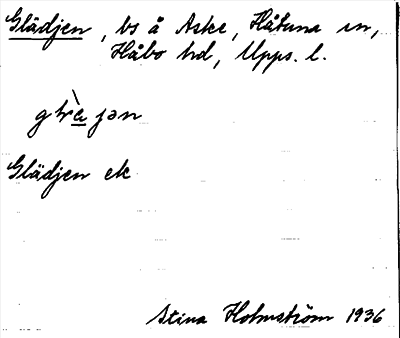 Glädjen, bs å Aske, Håtuna sn,
Håbo hd, Upps. l.
Glädjen ek
Stina Holmström 1936